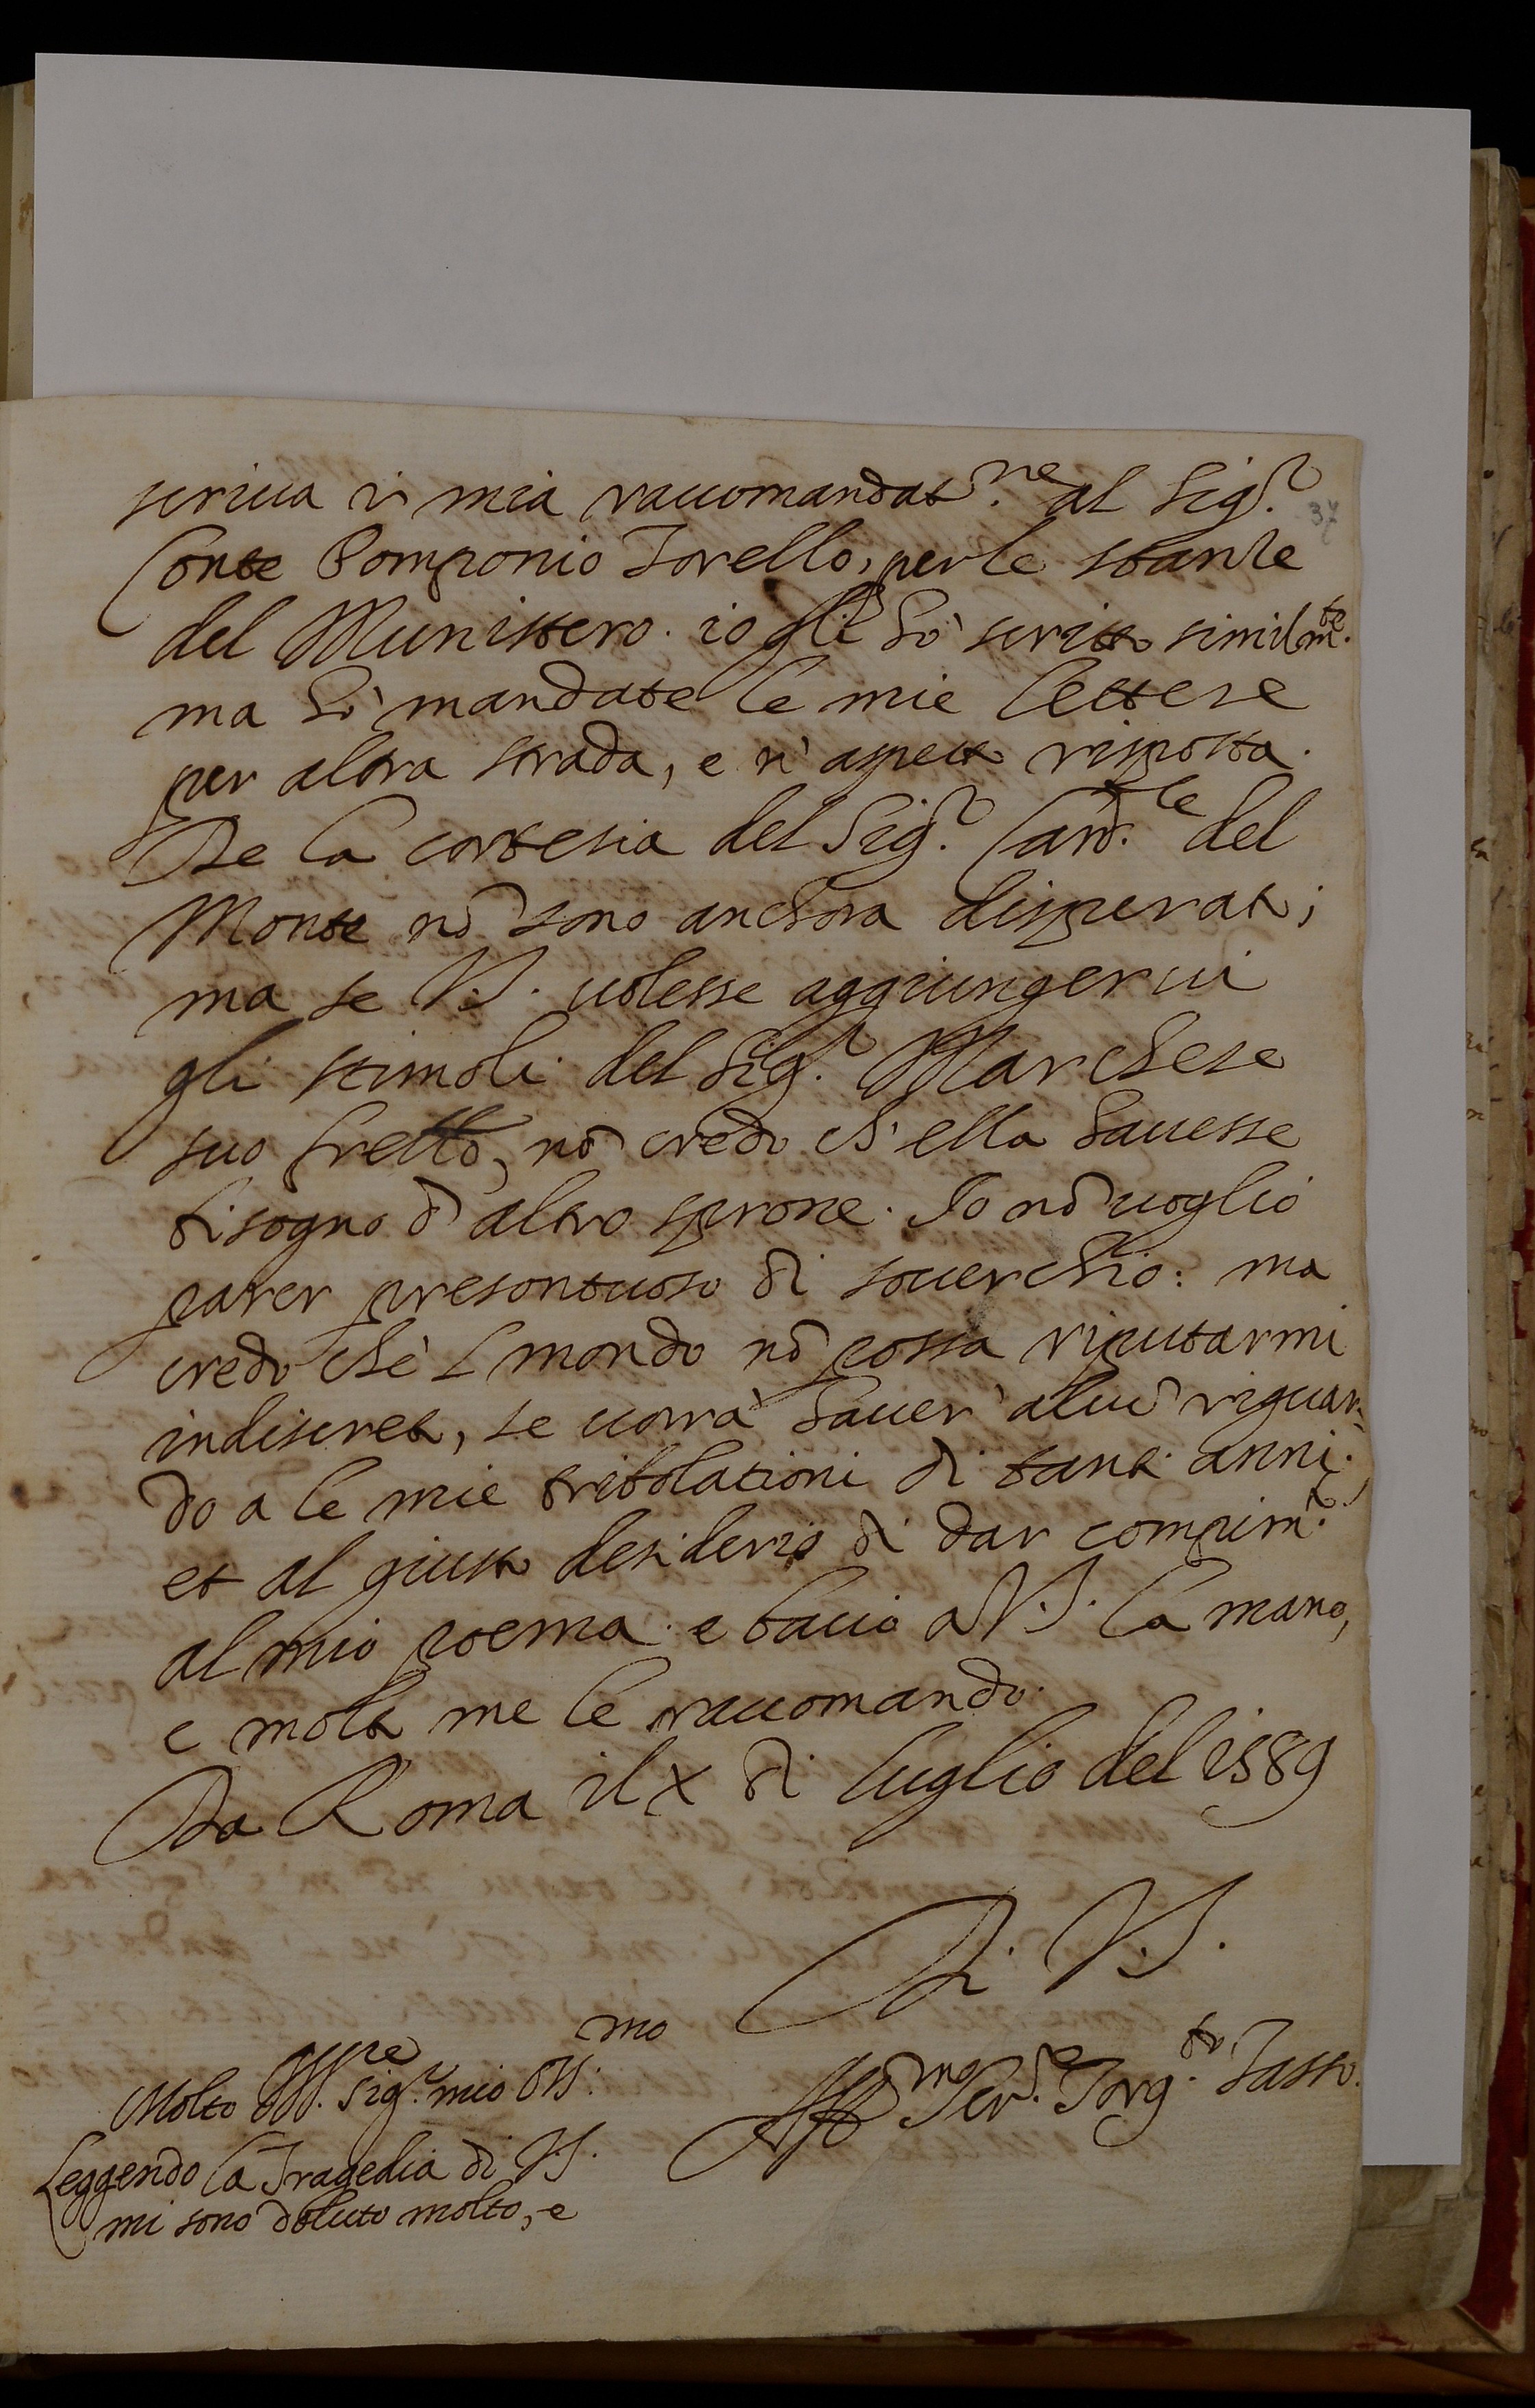 scriva in mia raccomandat.ne al Sig.r
Conte Pomponio Torello, per le stanze
del Munistero. io gli hò scritto similm.te
ma hò mandate le mie lettere
per altra strada, e n' aspetto risposta.
De la cortesia del Sig.r Card.le del
Monte nō sono anchora disperato;
ma se V.S. uolesse aggiungerui
gli stimoli del Sig.r Marchese
suo frello, nō credo ch' ella hauesse
bisogno d' altro sprone. Io nō uoglio
parer presontuoso di souerchio: ma
credo che 'l mondo nō possa riputarmi
indiscreto, se uorrà hauer alcū riguar-
do a le mie tribolationi di tanti anni.
et al giusto desiderio di dar compim.to
al mio poema. e bacio a V.S. la mano,
e molto me le raccomando.
Da Roma il X di luglio del 1589
Di V.S.
Aff.mo Ser.re Torq.to Tasso.
Molto Ill.re Sig.r mio Oss.mo
Leggendo la Tragedia di V.S.
mi sono doluto molto, e
37